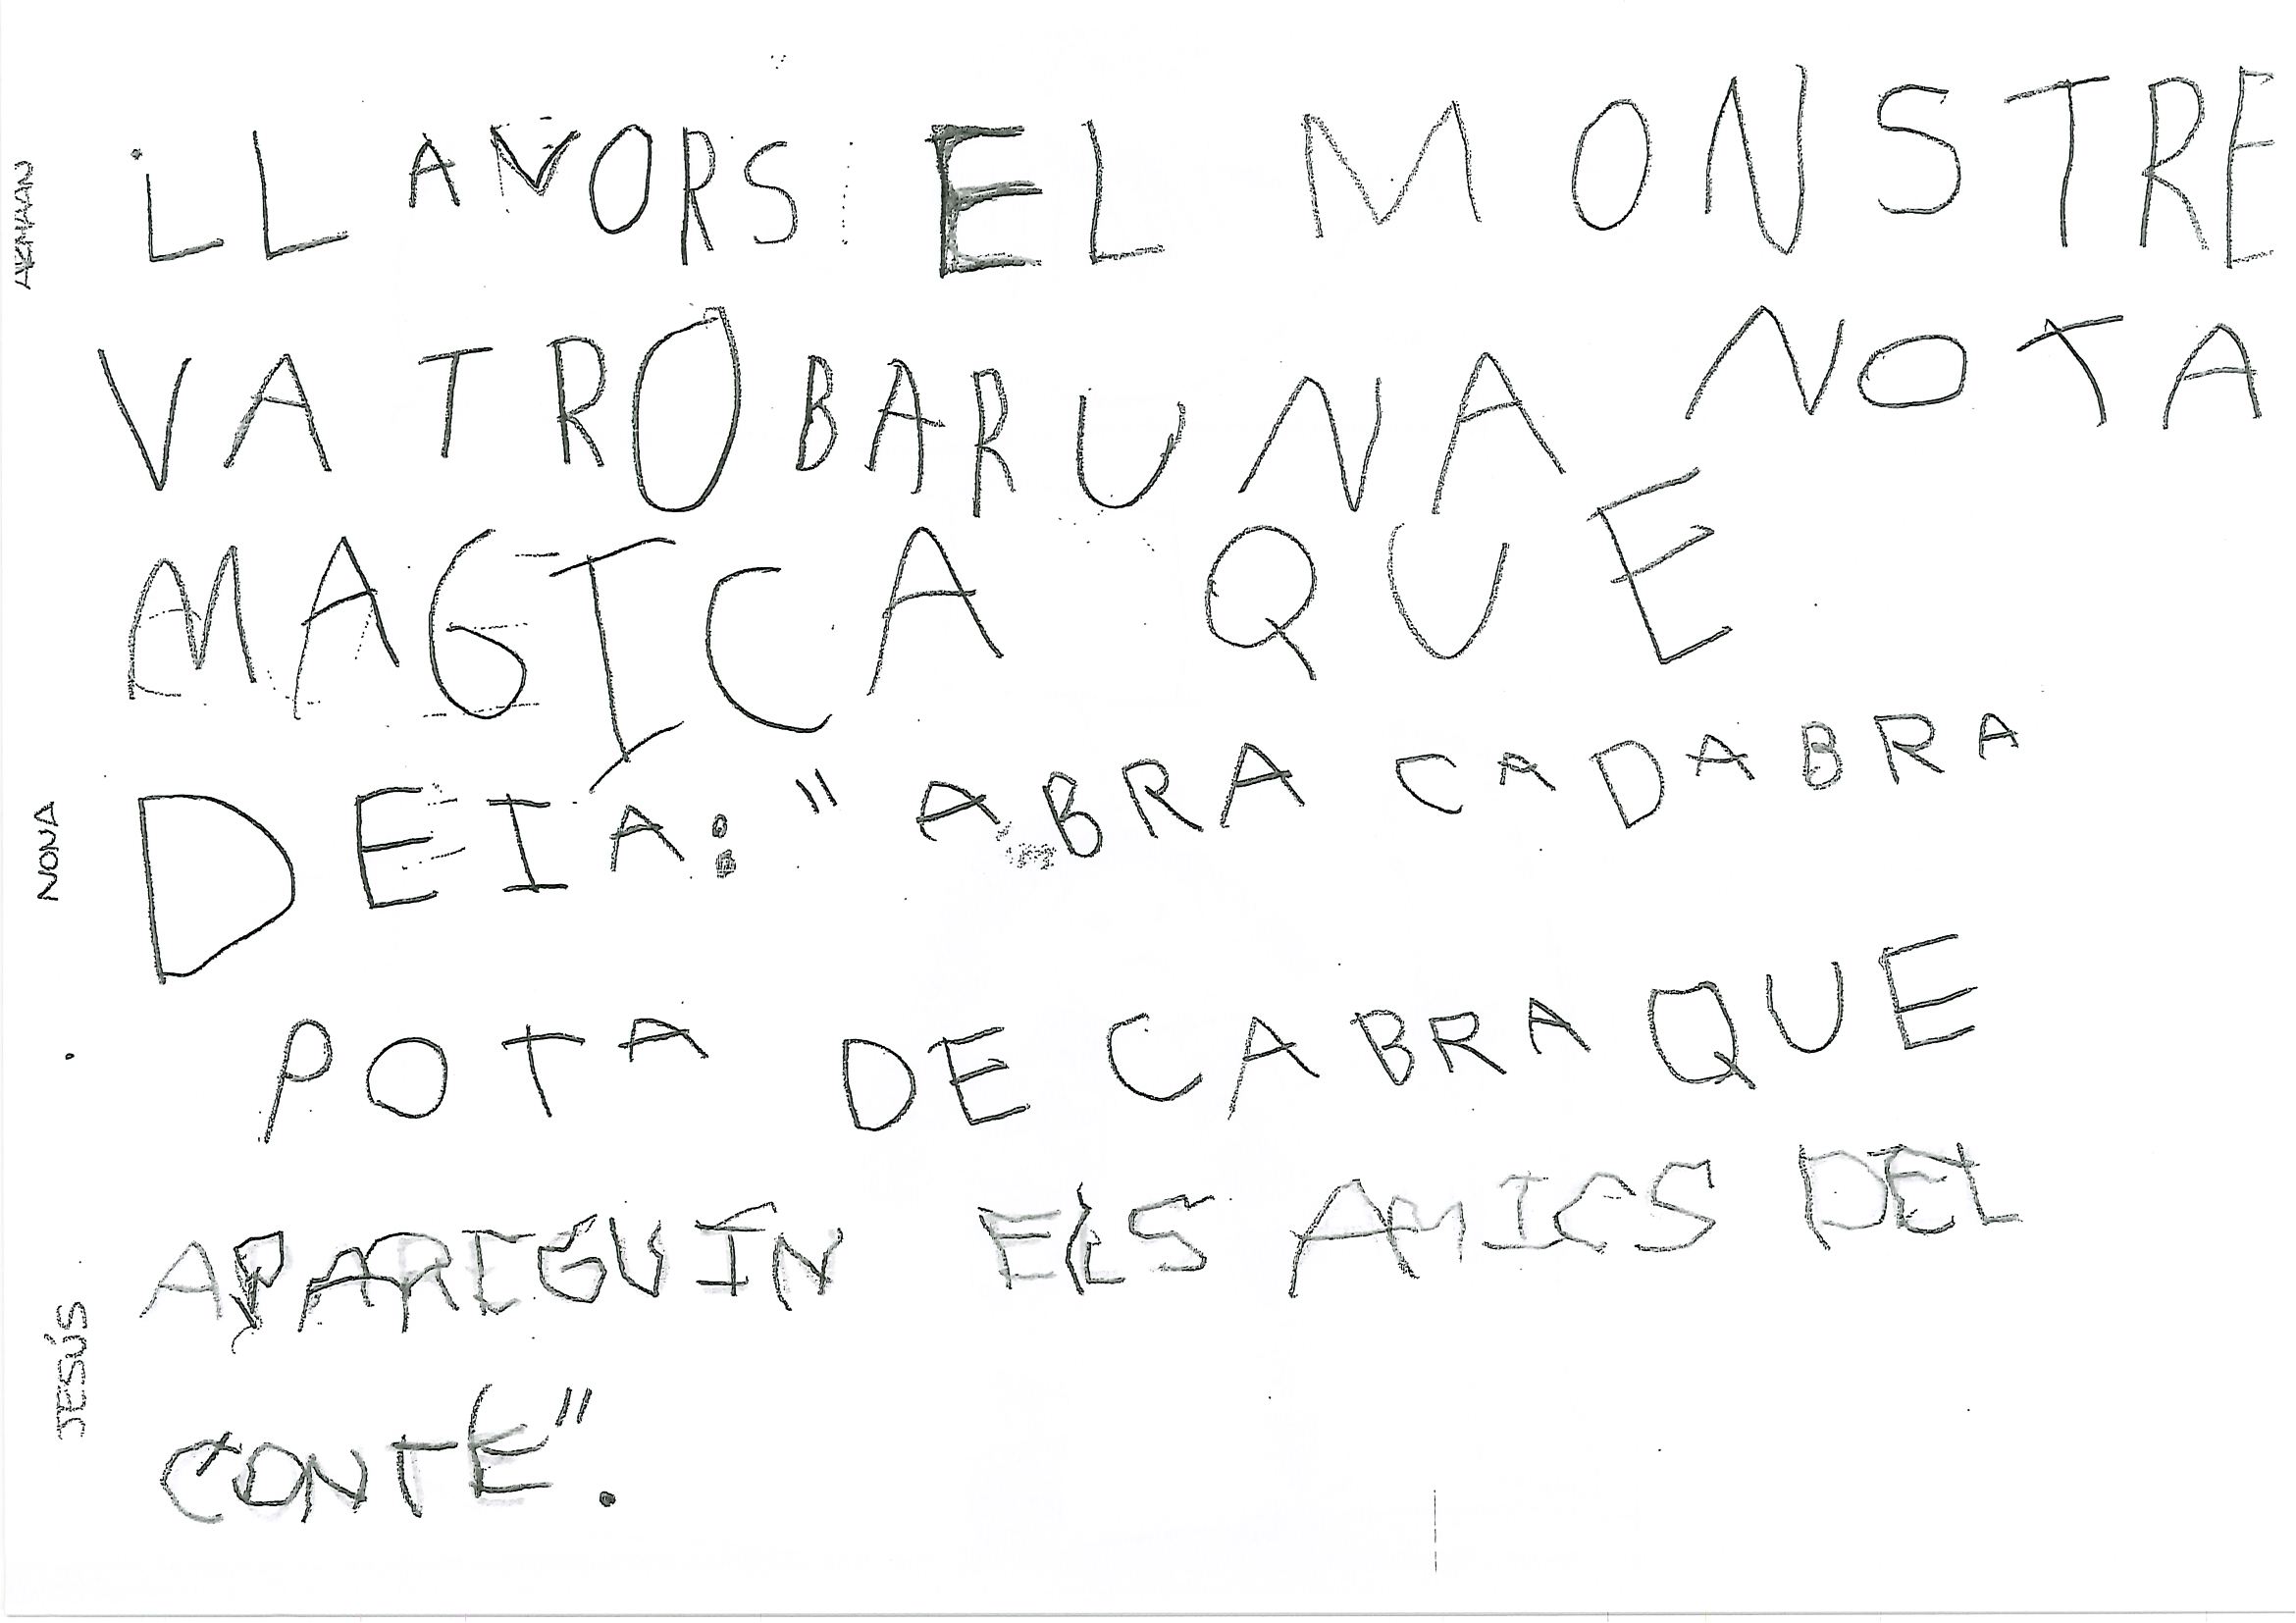 iLLAVORS EL MONSTRE
VA TROBAR UNA NOTA
MAGICA QUE
DEIA: "ABRA CADABRA
POTA DE CABRA QUE
APAREGUIN ELS AMICS DEL
CONTE".
NONA
JESÚS